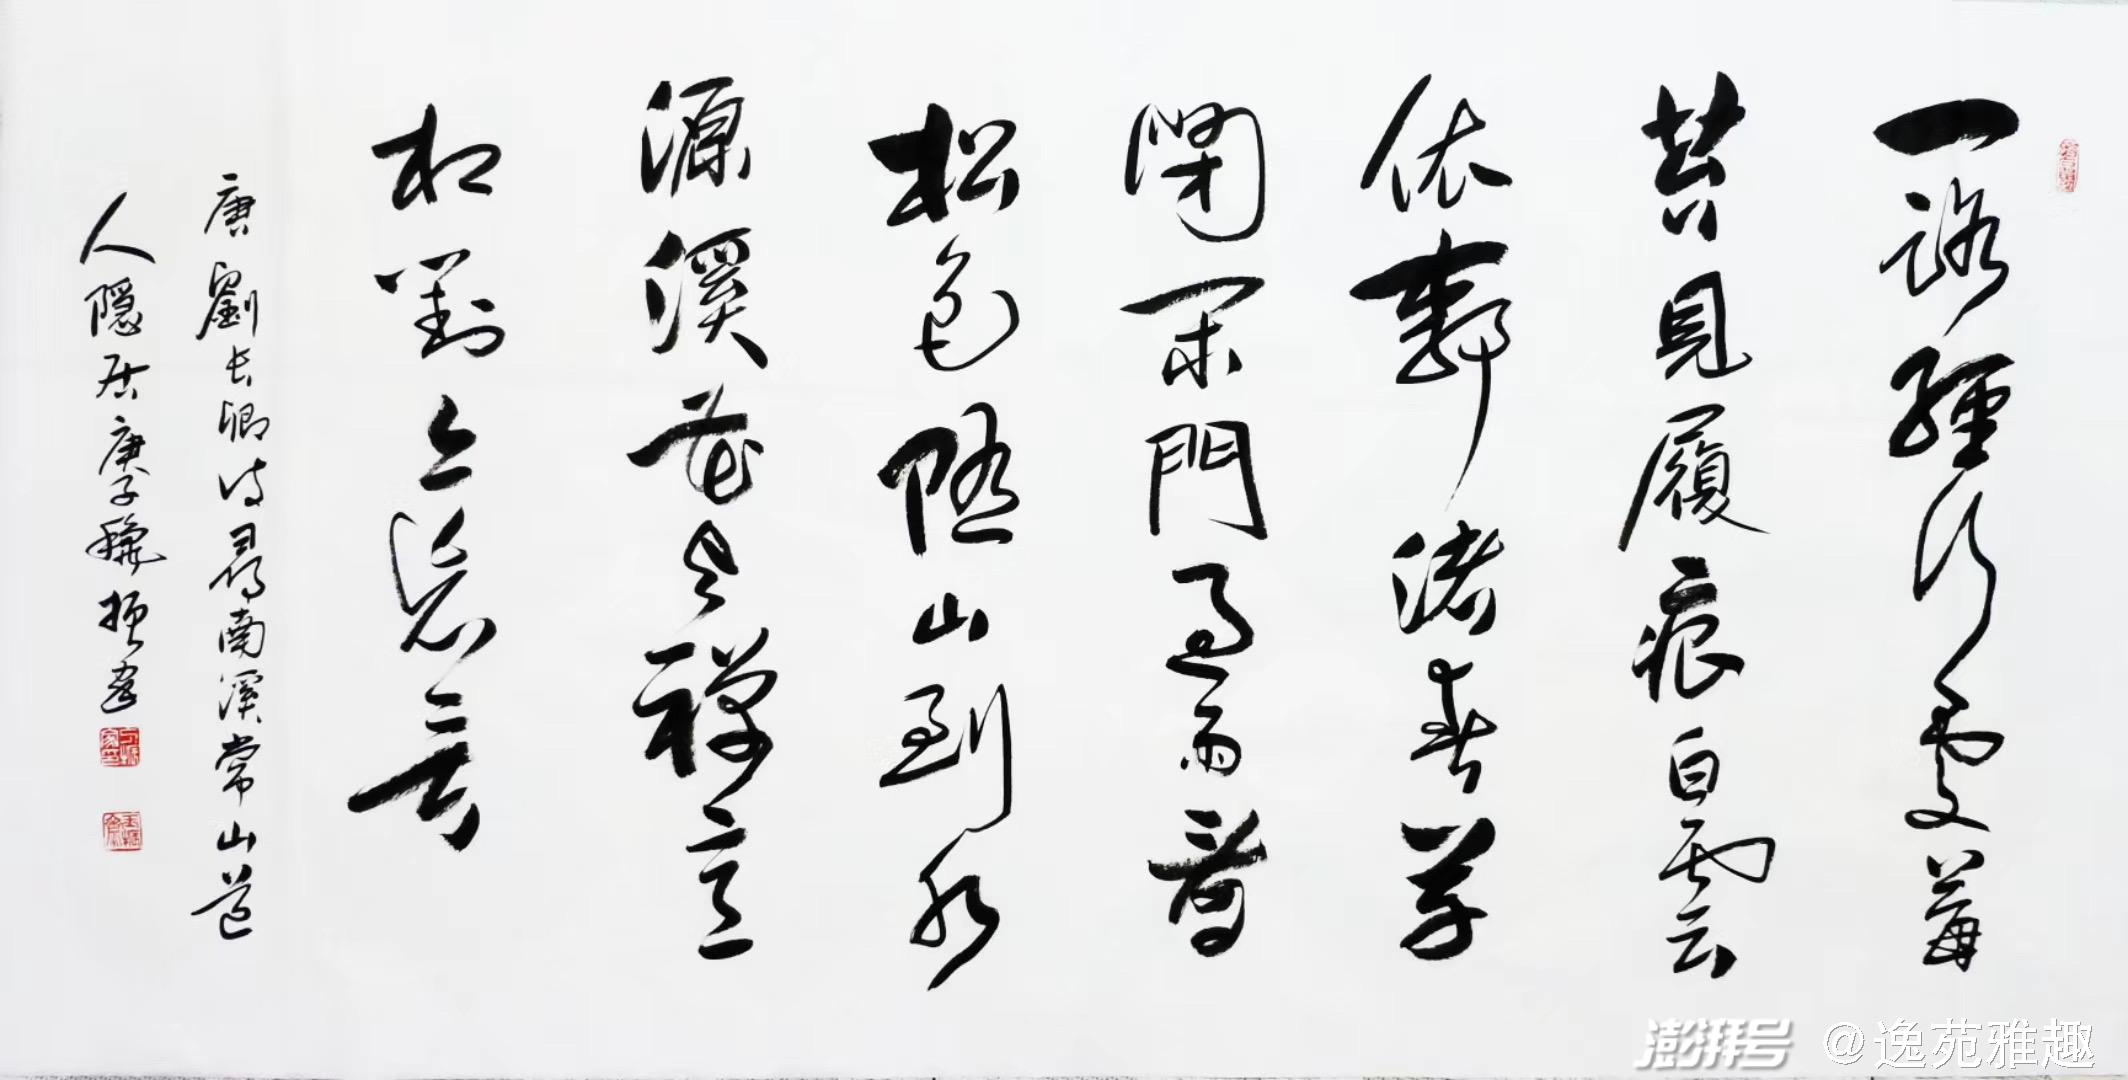 一路經行處莓
苔見履痕白雲
依靜渚春草
閉閑門過雨看
松色隨山到水
源溪花與禪意
相對亦忘言
唐劉長卿詩尋南溪常山道
人隱居庚子龝振
澎湃号 @逸苑雅趣